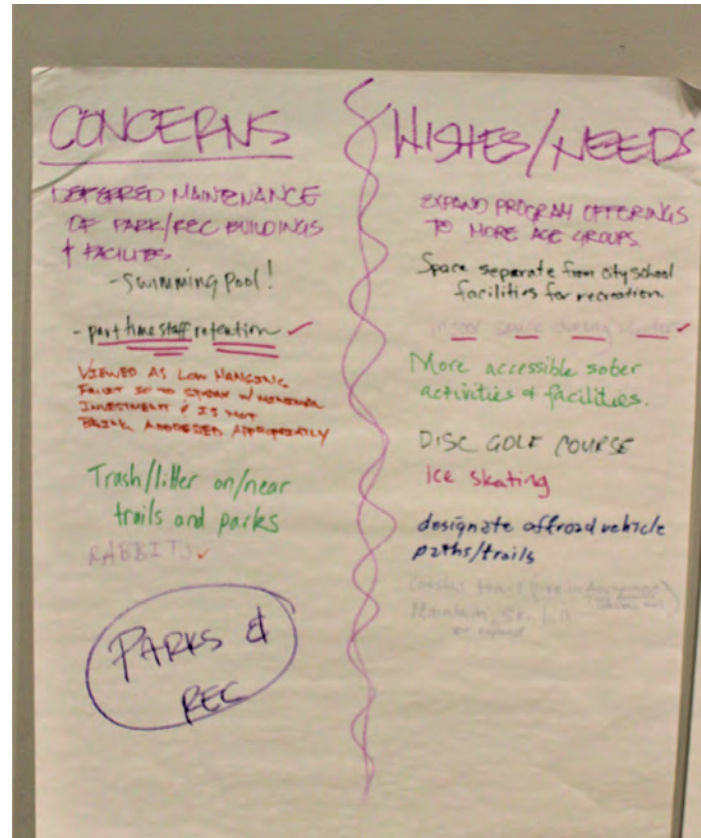 CONCERNS
DEFERRED MAINTENANCE
OF PARK/REC BUILDINGS
& FACILITES
- Swimming Pool!
- part time staff retention ✓
VIEWED AS LOW HANGING
FRUIT SO TO SPEAK W/ MINIMAL
INVESTMENT & IS NOT
BEING ADDRESSED APPROPRIATLY
Trash/litter on/near
trails and parks
RABBITS ✓
PARKS &
REC
WISHES/NEEDS
EXPAND PROGRAM OFFERINGS
TO MORE AGE GROUPS
Space separate from city school
facilities for recreation.
indoor space during winter ✓
More accessible sober
activities & facilities.
DISC GOLF COURSE
Ice Skating
designate offroad vehicle
paths/trails
trail
Maintain
or expand